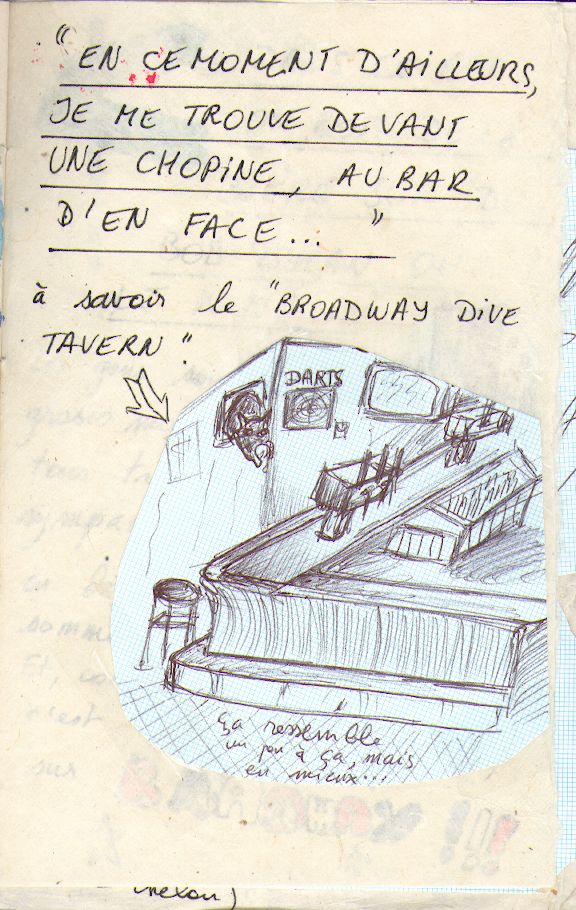 "EN CE MOMENT D'AILLEURS,
JE ME TROUVE DEVANT
UNE CHOPINE, AU BAR
D'EN FACE... "
à savoir le "BROADWAY DIVE
TAVERN".
DARTS
ça ressemble
un peu à ça, mais
en mieux...
sur